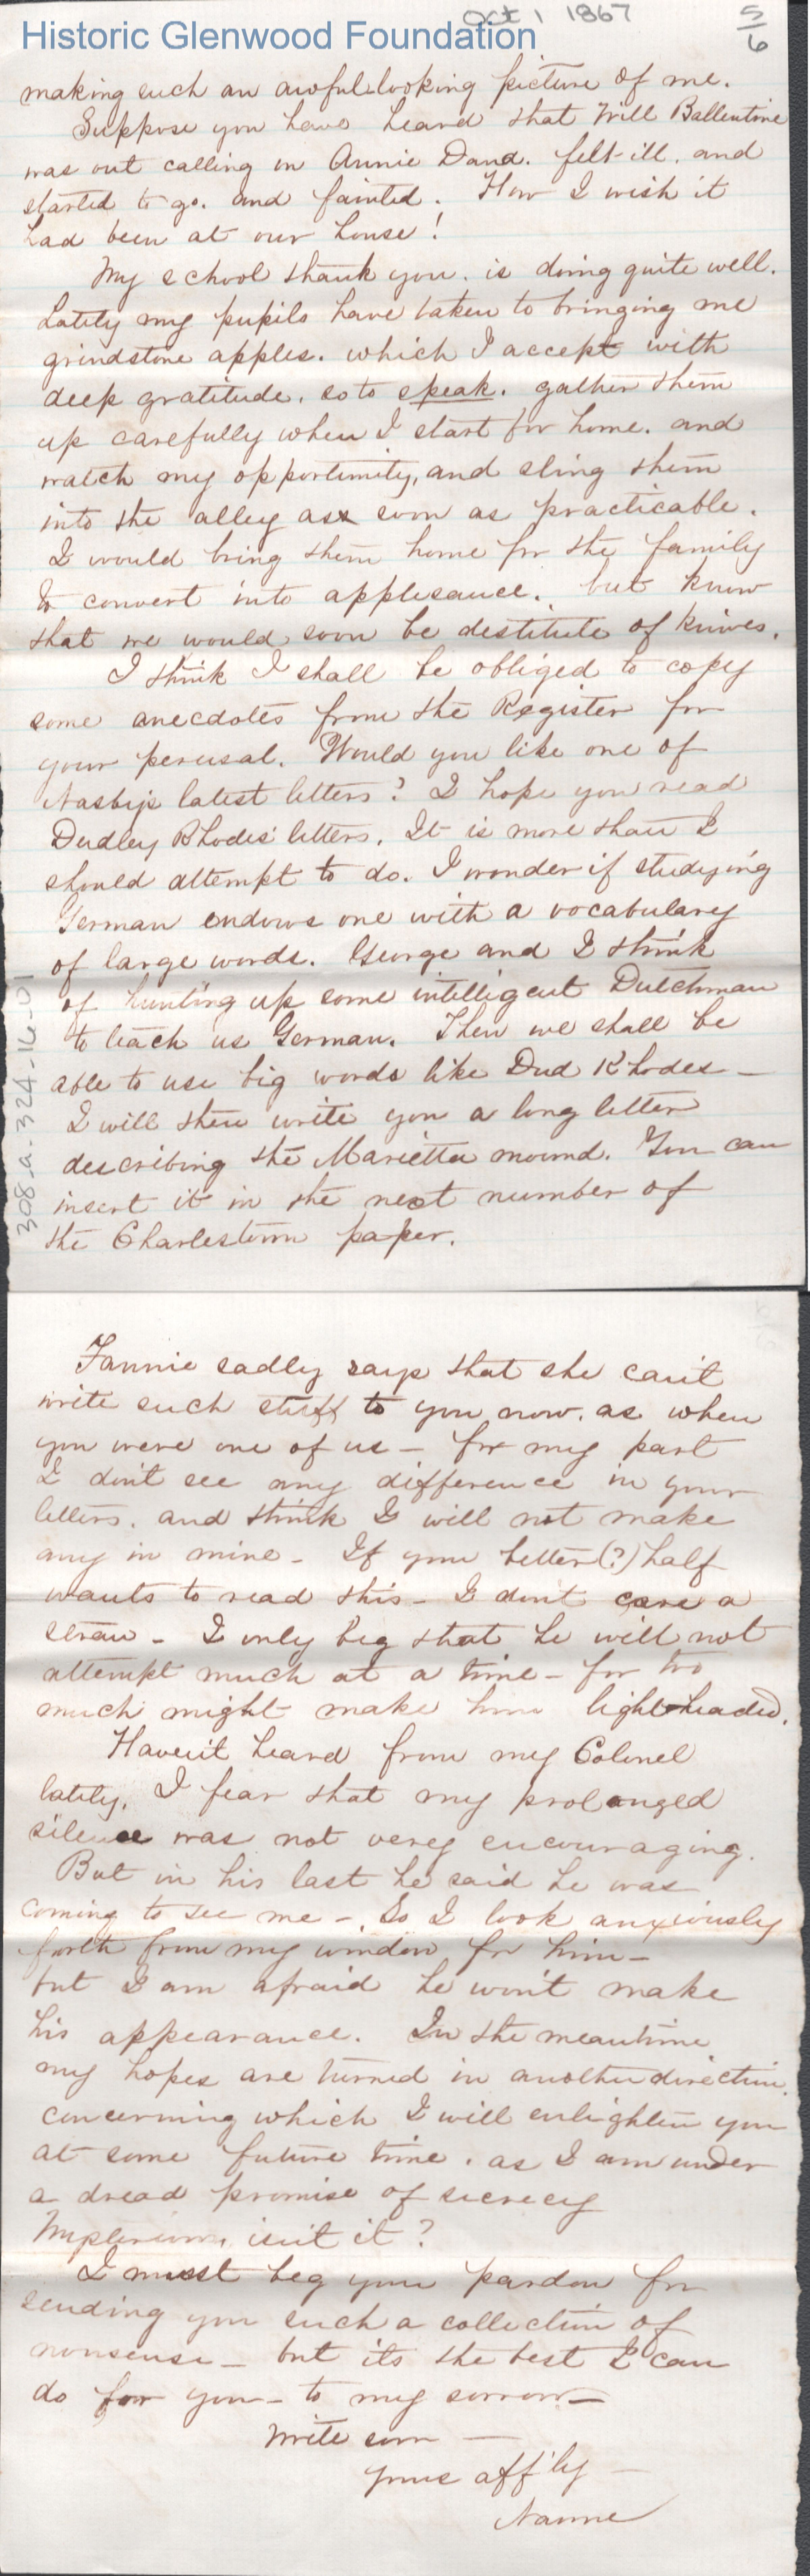 Oct 1 1867
5/6
Historic Glenwood Foundation
making such an awful looking picture of me.
Suppose you have heard that Will Ballentine
was out calling on Annie Dana. felt ill. and
started to go. and fainted. How I wish it
had been at our house!
My school thank you. is doing quite well.
Lately my pupils have taken to bringing me
grindstone apples. which I accept with
deep gratitude. so to speak. gather them
up carefully when I start for home. and
watch my opportunity, and sling them
into the alley as soon as practicable.
I would bring them home for the family
to convert into applesauce. but know
that we would soon be destitute of knives.
I think I shall be obliged to copy
some anecdotes from the Register for
your perusal. Would you like one of
Nasby's latest letters? I hope you read
Dudley Rhodes' letters. It is more than I
should attempt to do. I wonder if studying
German endows one with a vocabulary
of large words. George and I think
of hunting up some intelligent Dutchman
to teach us German. Then we shall be
able to use big words like Dud Rhodes—
I will then write you a long letter
describing the Marietta mound. You can
insert it in the next number of
the Charlestown paper.
308-a-324-16-01
Fannie sadly says that she can't
write such stuff to you now. as when
you were one of us — for my part
I don't see any difference in your
letters. and think I will not make
any in mine — If your better(?) half
wants to read this — I don't care a
straw — I only beg that he will not
attempt much at a time — for too
much might make him lightheaded.
Haven't heard from my Colonel
lately. I fear that my prolonged
silence was not very encouraging.
But in his last he said he was
coming to see me — So I look anxiously
forth from my window for him —
but I am afraid he won't make
his appearance. In the meantime
my hopes are turned in another direction.
concerning which I will enlighten you
at some future time. as I am under
a dread promise of secrecy
isn't it?
I must beg your pardon for
sending you such a collection of
nonsense — but its the best I can
do for you — to my sorrow —
Write soon —
Yours aff'ly —
Nannie